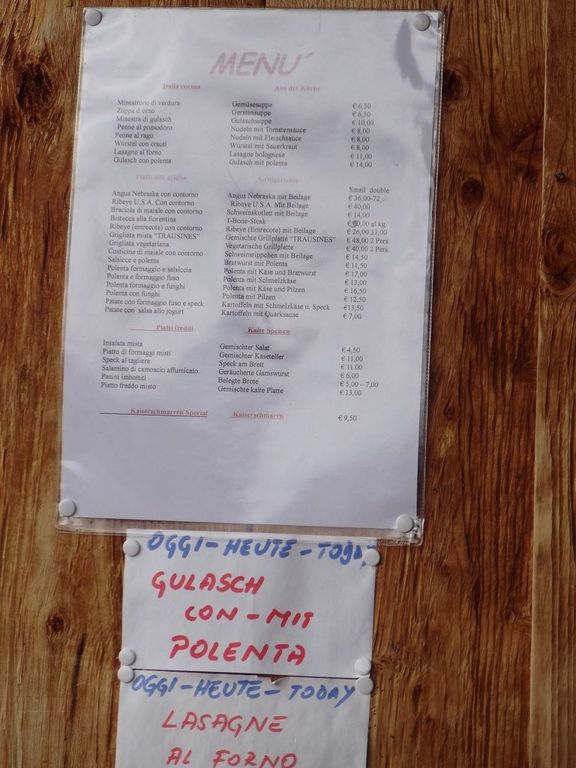 MENU´
Dalla cucina Aus der Küche
Minestrone di verdura Gemüsesuppe € 6,50
Zuppa d'orzo Gerstensuppe € 6,50
Minestra di gulasch Gulaschsuppe € 10,00
Penne al pomodoro Nudeln mit Tomatensauce € 8,00
Penne al ragù Nudeln mit Fleischsauce € 8,00
Würstel con crauti Würstel mit Sauerkraut € 8,00
Lasagne al forno Lasagne bolognese € 11,00
Gulasch con polenta Gulasch mit polenta € 14,00
Piatti alla griglia Grillgerichte Small double
Angus Nebraska con contorno Angus Nebraska mit Beilage € 36,00-72,--
Ribeye U.S.A. Con contorno Ribeye U.S.A. Mit Beilage € 40,00
Braciola di maiale con contorno Schweinskotlett mit Beilage € 14,00
Bistecca alla fiorentina T-Bone-Steak al kg.
Ribeye (entrecote) con contorno Ribeye (Entrecote) mit Beilage € 26,00 33,00
Grigliata mista "TRAUSINES" Gemischte Grillplatte "TRAUSINES" € 48,00 2 Pers.
Grigliata vegetariana Vegetarische Grillplatte € 40,00 2 Pers.
Costicine di maiale con contorno Schweinerippchen mit Beilage € 14,50
Salsicce e polenta Bratwurst mit Polenta € 11,50
Polenta formaggio e salsiccia Polenta mit Käse und Bratwurst € 17,00
Polenta e formaggio fuso Polenta mit Schmelzkäse € 13,00
Polenta formaggio e funghi Polenta mit Käse und Pilzen € 16,50
Polenta con funghi Polenta mit Pilzen € 12,50
Patate con formaggio fuso e speck Kartoffeln mit Schmelzkäse u. Speck €13,50
Patate con salsa allo jogurt Kartoffeln mit Quarksause € 7,00
Piatti freddi Kalte Speisen
Insalata mista Gemischter Salat € 4,50
Piatto di formaggi misti Gemischter Käseteller € 11,00
Speck al tagliere Speck am Brett € 11,00
Salamino di camoscio affumicato Geräucherte Gamswurst € 6,00
Panini imbottiti Belegte Brote € 5,00 – 7,00
Piatto freddo misto Gemischte kalte Platte € 13,00
Kaiserschmarren Special Kaiserschmarren € 9,50
OGGI-HEUTE-TODAY
GULASCH
CON-MIT
POLENTA
OGGI-HEUTE-TODAY
LASAGNE
AL FORNO